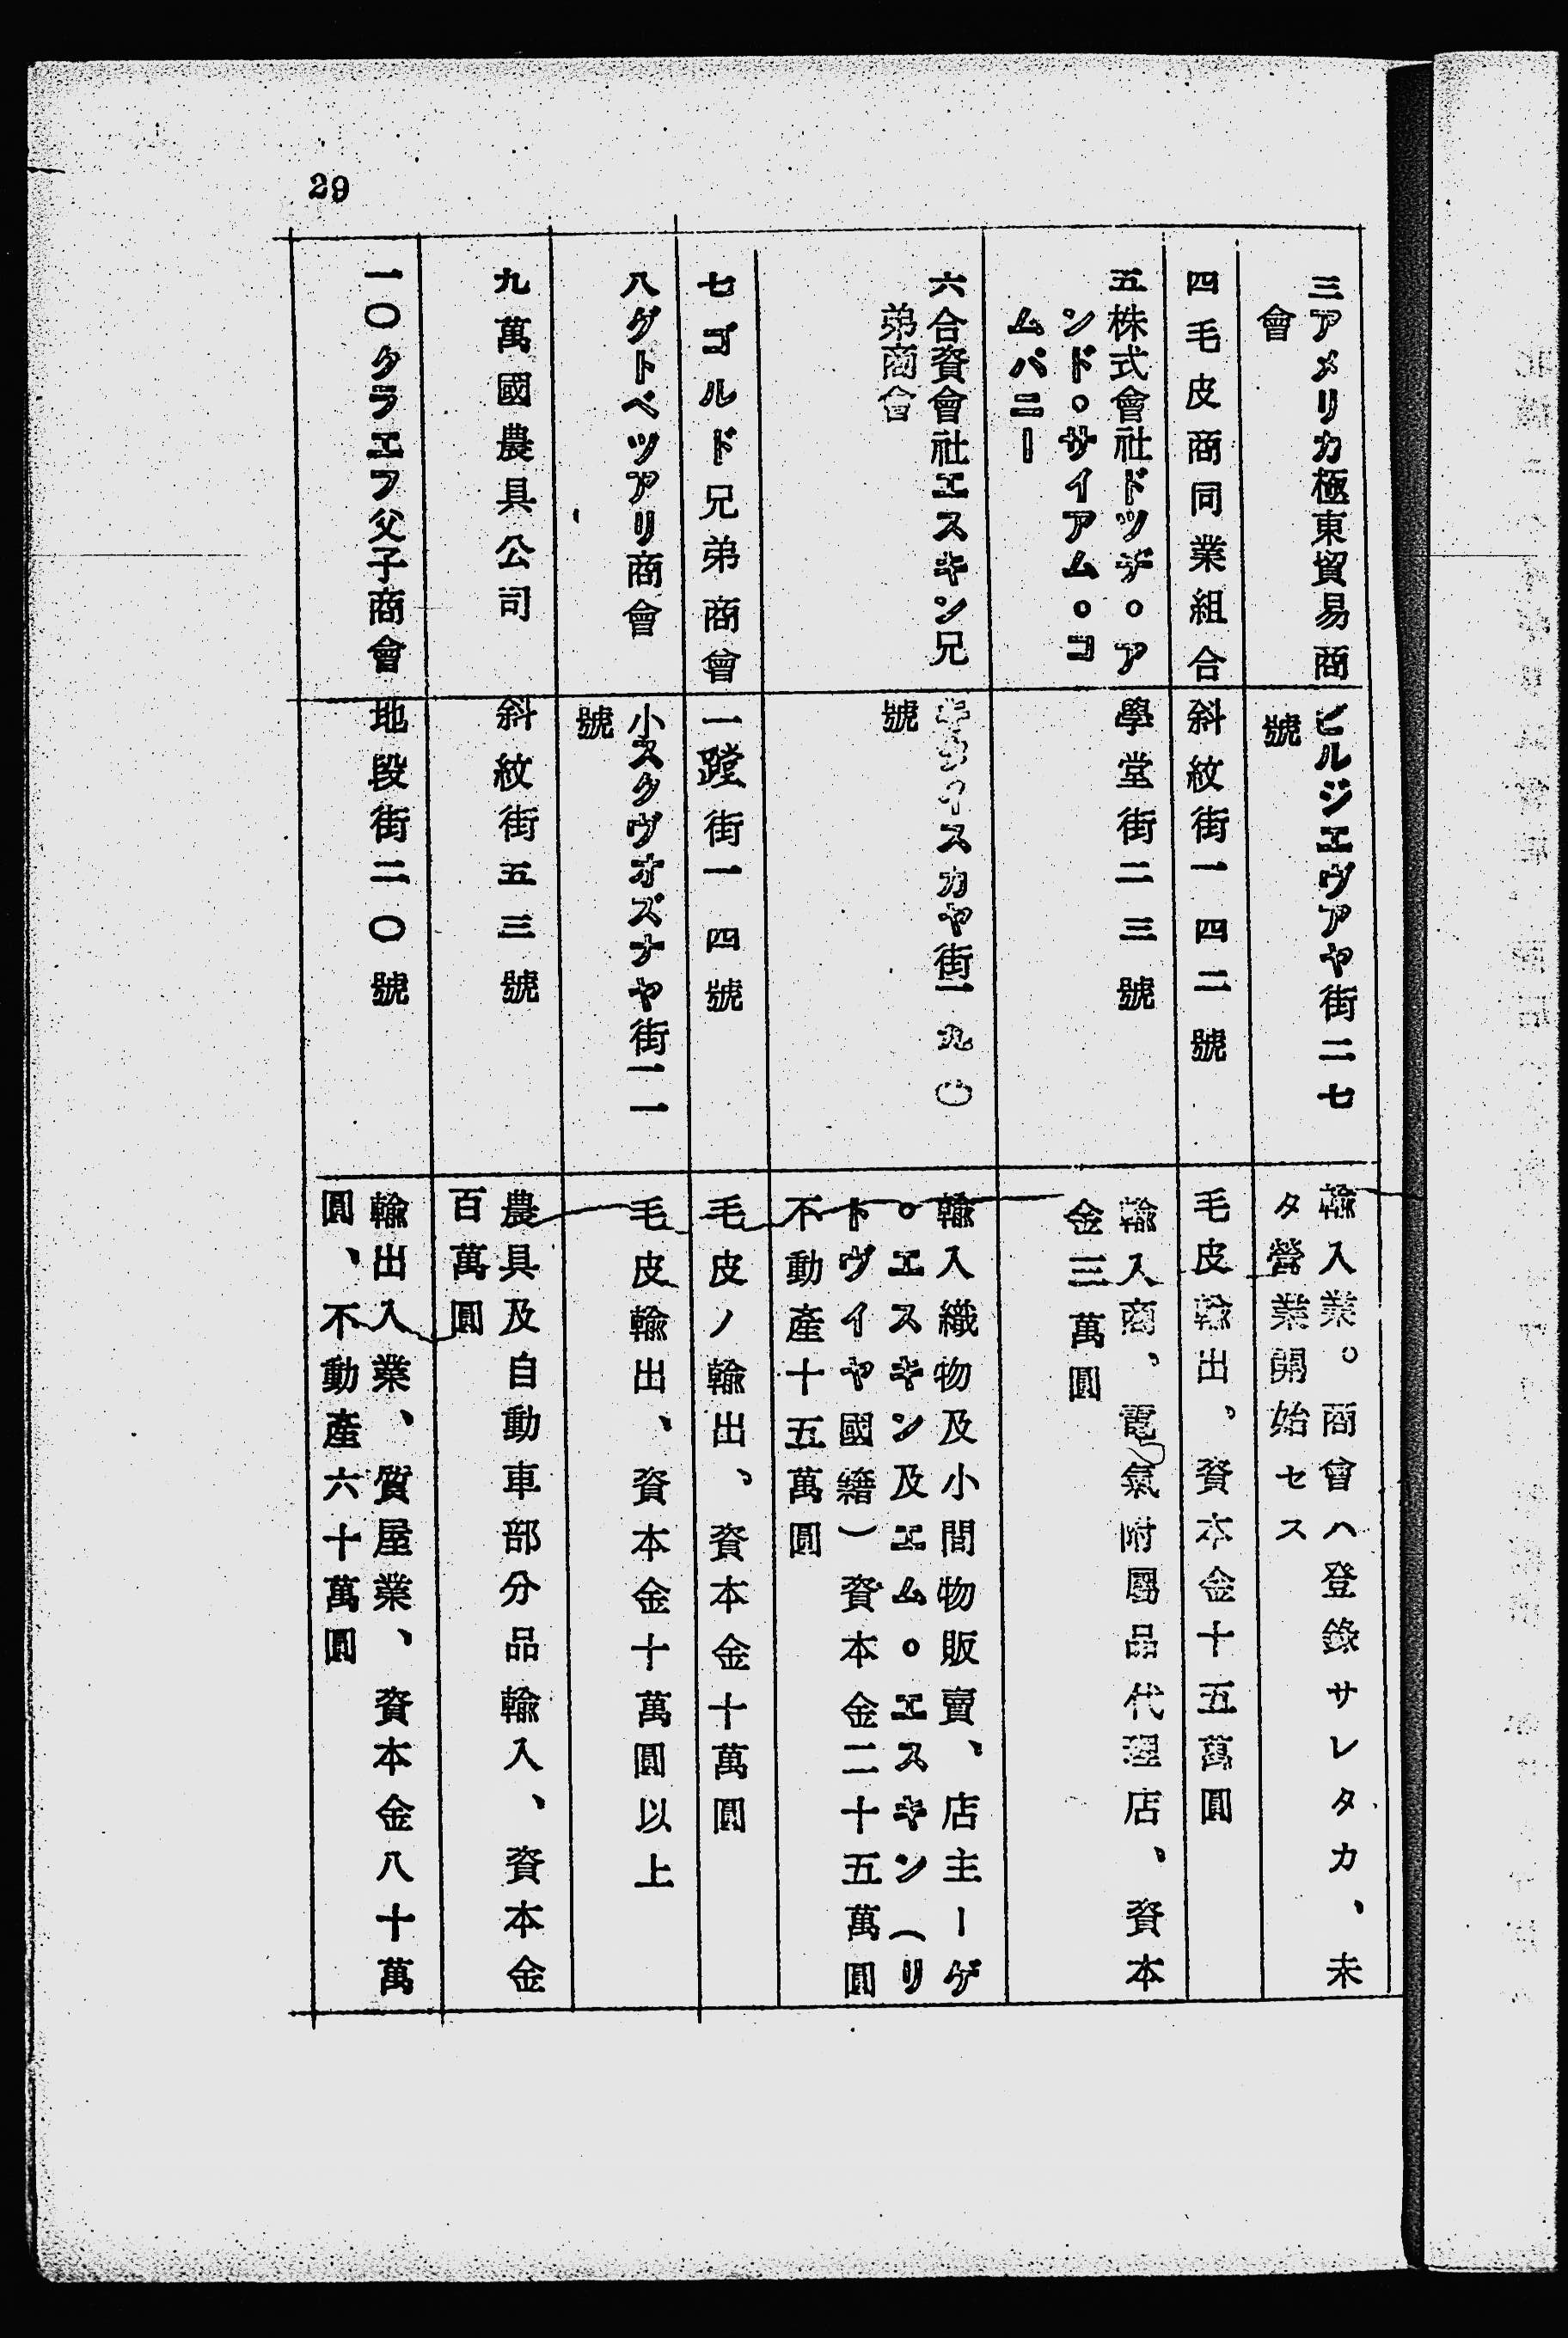 29
三アメリカ極東貿易商
會
ビルジエヴアヤ街二七
號
輸入業。商會ハ登錄サレタカ、未
タ營業開始セス
四毛皮商同業組合
斜紋街一四二號
毛皮輸出、資本金十五萬圓
五株式會社ドツヂ。ア
ンド。サイアム。コ
ムパニー
學堂街二三號
輸入商、電氣附屬品代理店、資本
金三萬圓
六合資會社エスキン兄
弟商會
キタイスカヤ街一九〇
號
輸入織物及小間物販賣、店主ーゲ
。エスキン及エム。エスキン(リ
トヴイヤ國籍)資本金二十五萬圓
不動產十五萬圓
七ゴルド兄弟商會
一蹚街一四號
毛皮ノ輸出、資本金十萬圓
八グトベツアリ商會
小スクヴオズナヤ街一一
號
毛皮輸出、資本金十萬圓以上
九萬國農具公司
斜紋街五三號
農具及自動車部分品輸入、資本金
百萬圓
一〇クラエフ父子商會
地段街二〇號
輸出入業、質屋業、資本金八十萬
圓、不動產六十萬圓